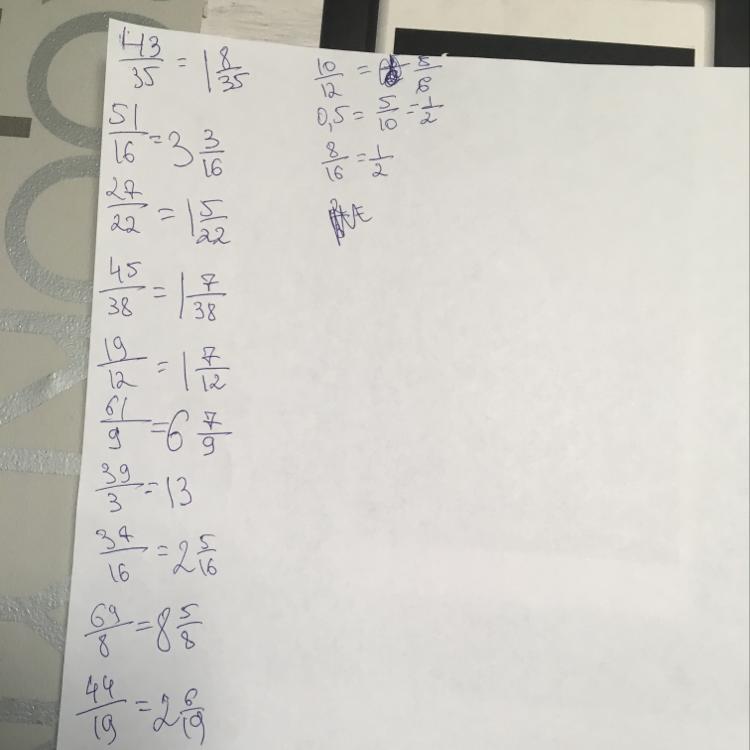 43/35 = 1 8/35
51/16 = 3 3/16
27/22 = 1 5/22
45/38 = 1 7/38
19/12 = 1 7/12
61/9 = 6 7/9
39/3 = 13
37/16 = 2 5/16
69/8 = 8 5/8
44/19 = 2 6/19
10/12 = 5/6
0,5 = 5/10 = 1/2
8/16 = 1/2